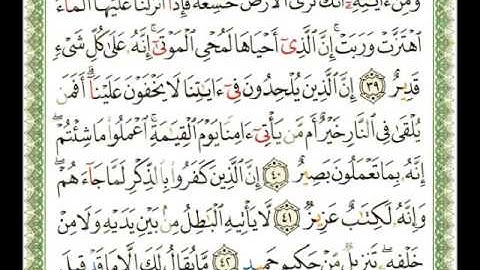 وَمِنْ ءَايَـٰتِهِۦٓ أَنَّكَ تَرَى ٱلْأَرْضَ خَـٰشِعَةً فَإِذَآ أَنزَلْنَا عَلَيْهَا ٱلْمَآءَ
ٱهْتَزَّتْ وَرَبَتْ ۚ إِنَّ ٱلَّذِىٓ أَحْيَاهَا لَمُحْىِ ٱلْمَوْتَىٰٓ ۚ إِنَّهُۥ عَلَىٰ كُلِّ شَىْءٍ
قَدِيرٌ ﴿٣٩﴾ إِنَّ ٱلَّذِينَ يُلْحِدُونَ فِىٓ ءَايَـٰتِنَا لَا يَخْفَوْنَ عَلَيْنَآ ۗ أَفَمَن
يُلْقَىٰ فِى ٱلنَّارِ خَيْرٌ أَم مَّن يَأْتِىٓ ءَامِنًا يَوْمَ ٱلْقِيَـٰمَةِ ۚ ٱعْمَلُوا۟ مَا شِئْتُمْ ۖ
إِنَّهُۥ بِمَا تَعْمَلُونَ بَصِيرٌ ﴿٤٠﴾ إِنَّ ٱلَّذِينَ كَفَرُوا۟ بِٱلذِّكْرِ لَمَّا جَآءَهُمْ ۖ
وَإِنَّهُۥ لَكِتَـٰبٌ عَزِيزٌ ﴿٤١﴾ لَّا يَأْتِيهِ ٱلْبَـٰطِلُ مِنۢ بَيْنِ يَدَيْهِ وَلَا مِنْ
خَلْفِهِۦ ۖ تَنزِيلٌ مِّنْ حَكِيمٍ حَمِيدٍ ﴿٤٢﴾ مَّا يُقَالُ لَكَ إِلَّا مَا قَدْ قِيلَ